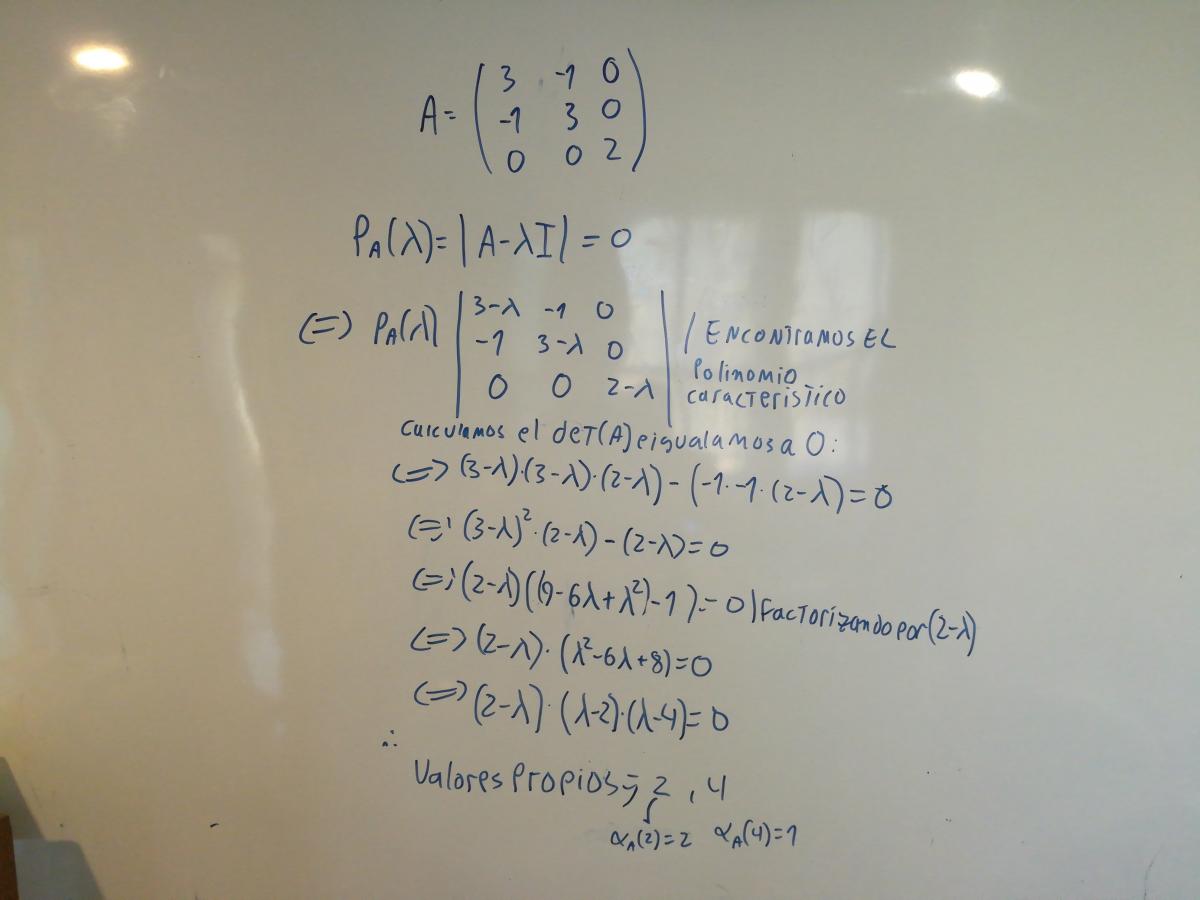 A= ( 3 -1 0
-1 3 0
0 0 2 )
P_A(λ)= |A-λI| = 0
(=) P_A(λ) | 3-λ -1 0 |
| -1 3-λ 0 | / ENCONTRAMOS EL
| 0 0 2-λ | Polinomio
característico
Calculamos el deT(A) e igualamos a 0:
<=> (3-λ)·(3-λ)·(2-λ) - (-1·-1·(2-λ)=0
(=) (3-λ)²·(2-λ) - (2-λ)=0
(=) (2-λ)((9-6λ+λ²)-1)=0 | Factorizando por (2-λ)
(=) (2-λ)·(λ²-6λ+8)=0
<=> (2-λ)·(λ-2)·(λ-4)=0
∴
Valores Propios=; 2 , 4
α_A(2)=2 α_A(4)=1